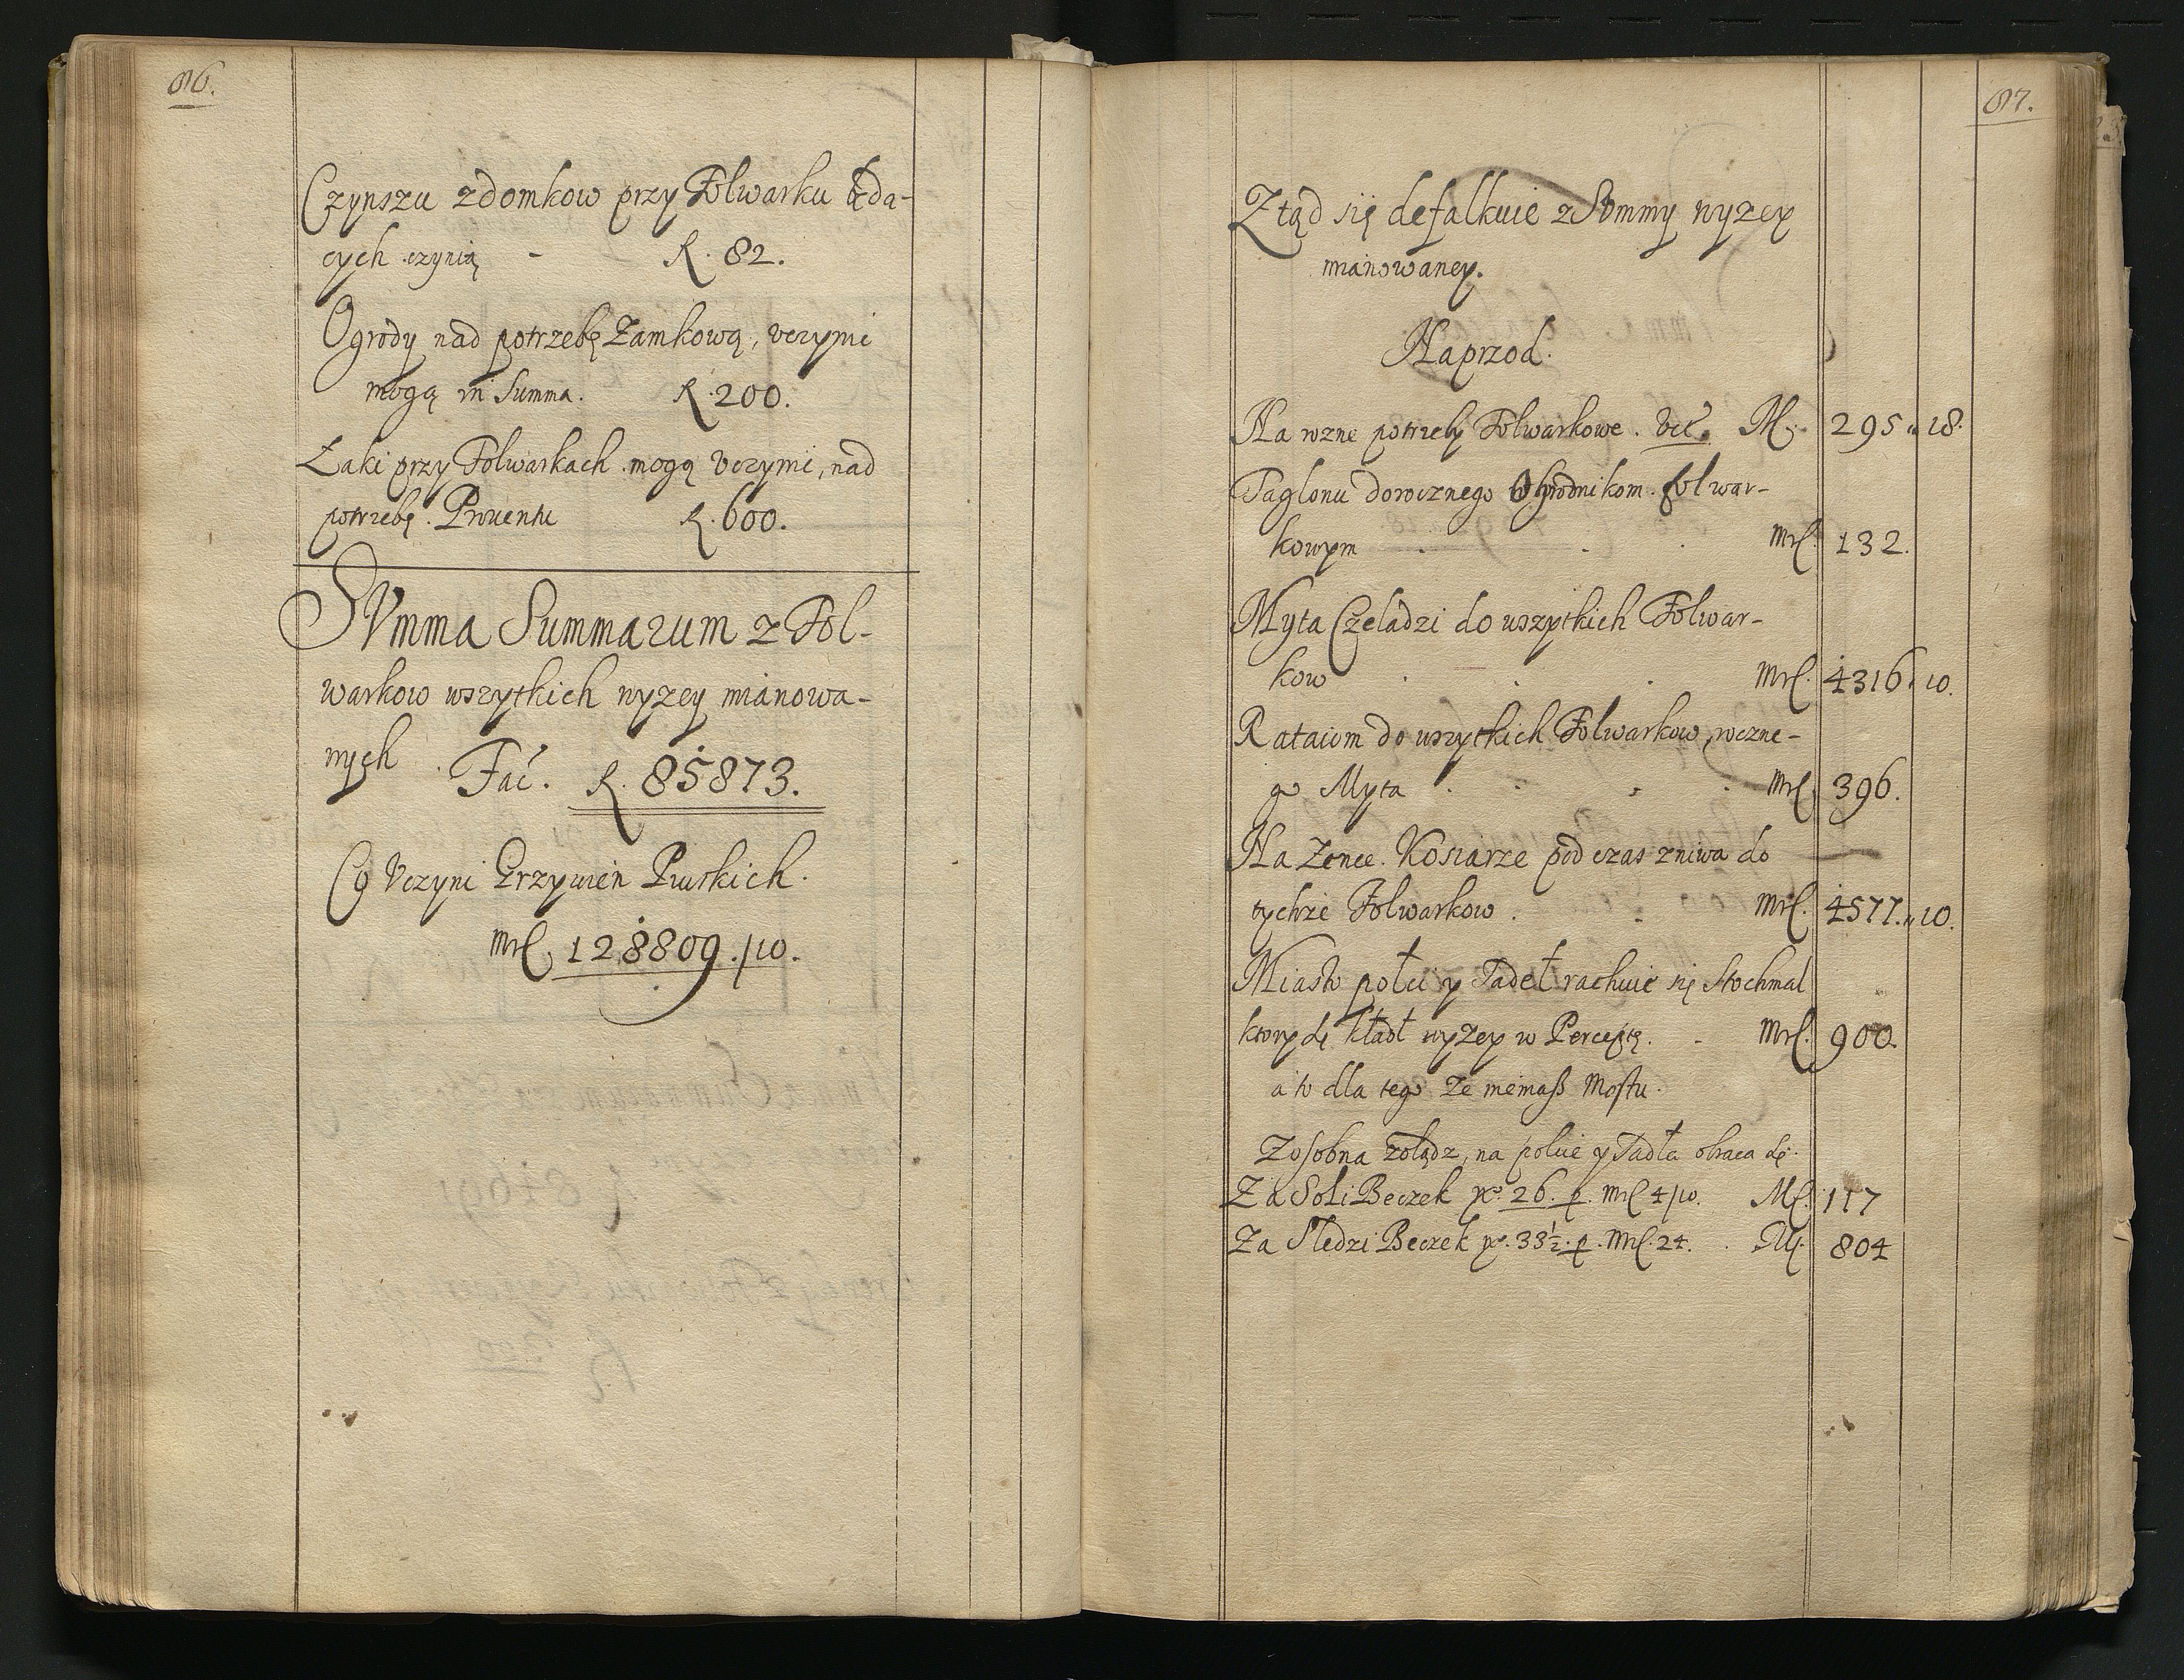 86.
Czynszu z domkow przy Folwarku będą-
cych czynią - f. 82.
Ogrody nad potrzebę Zamkową, uczynić
mogą in Summa. f. 200.
Łąki przy Folwarkach mogą Uczynić, nad
potrzebę. Prouentu f. 600.
SVmma Summarum z Fol-
warkow wszytkich wyzey mianowa-
nych Fać. f. 85873.
Co Vczyni Grzywien Pruskich.
Mrc. 128809./10.
87.
Ztąd się defalkuie z Summy wyzey
mianowaney.
Naprzod.
Na rozne potrzeby Folwarkowe. M. 295 " 18.
dorocznego Ogrodnikom folwar-
kowym Mrc. 132.
Myta Czeladzi do wszytkich Folwar-
kow Mrc. 4316 " 10.
Rataiom do wszytkich Folwarkow, roczne-
go Myta Mrc. 396.
Na Zence. Kosiarze pod czas zniwa do
tychze Folwarkow. Mrc. 4577. " 10.
Miasto połci y Sadeł rachuie się Stochmal
ktory się kładł wyzey w Perceptę. - Mrc. 900.
a to dla tego ze niemasz Mostu.
Zosobna zołądz, na polcie y Sadła obraca się.
Za Soli Beczek No. 26. p. Mrc 4/10. Mc. 117
Za Sledzi Beczek No. 33½. p. Mrc. 24. M. 804